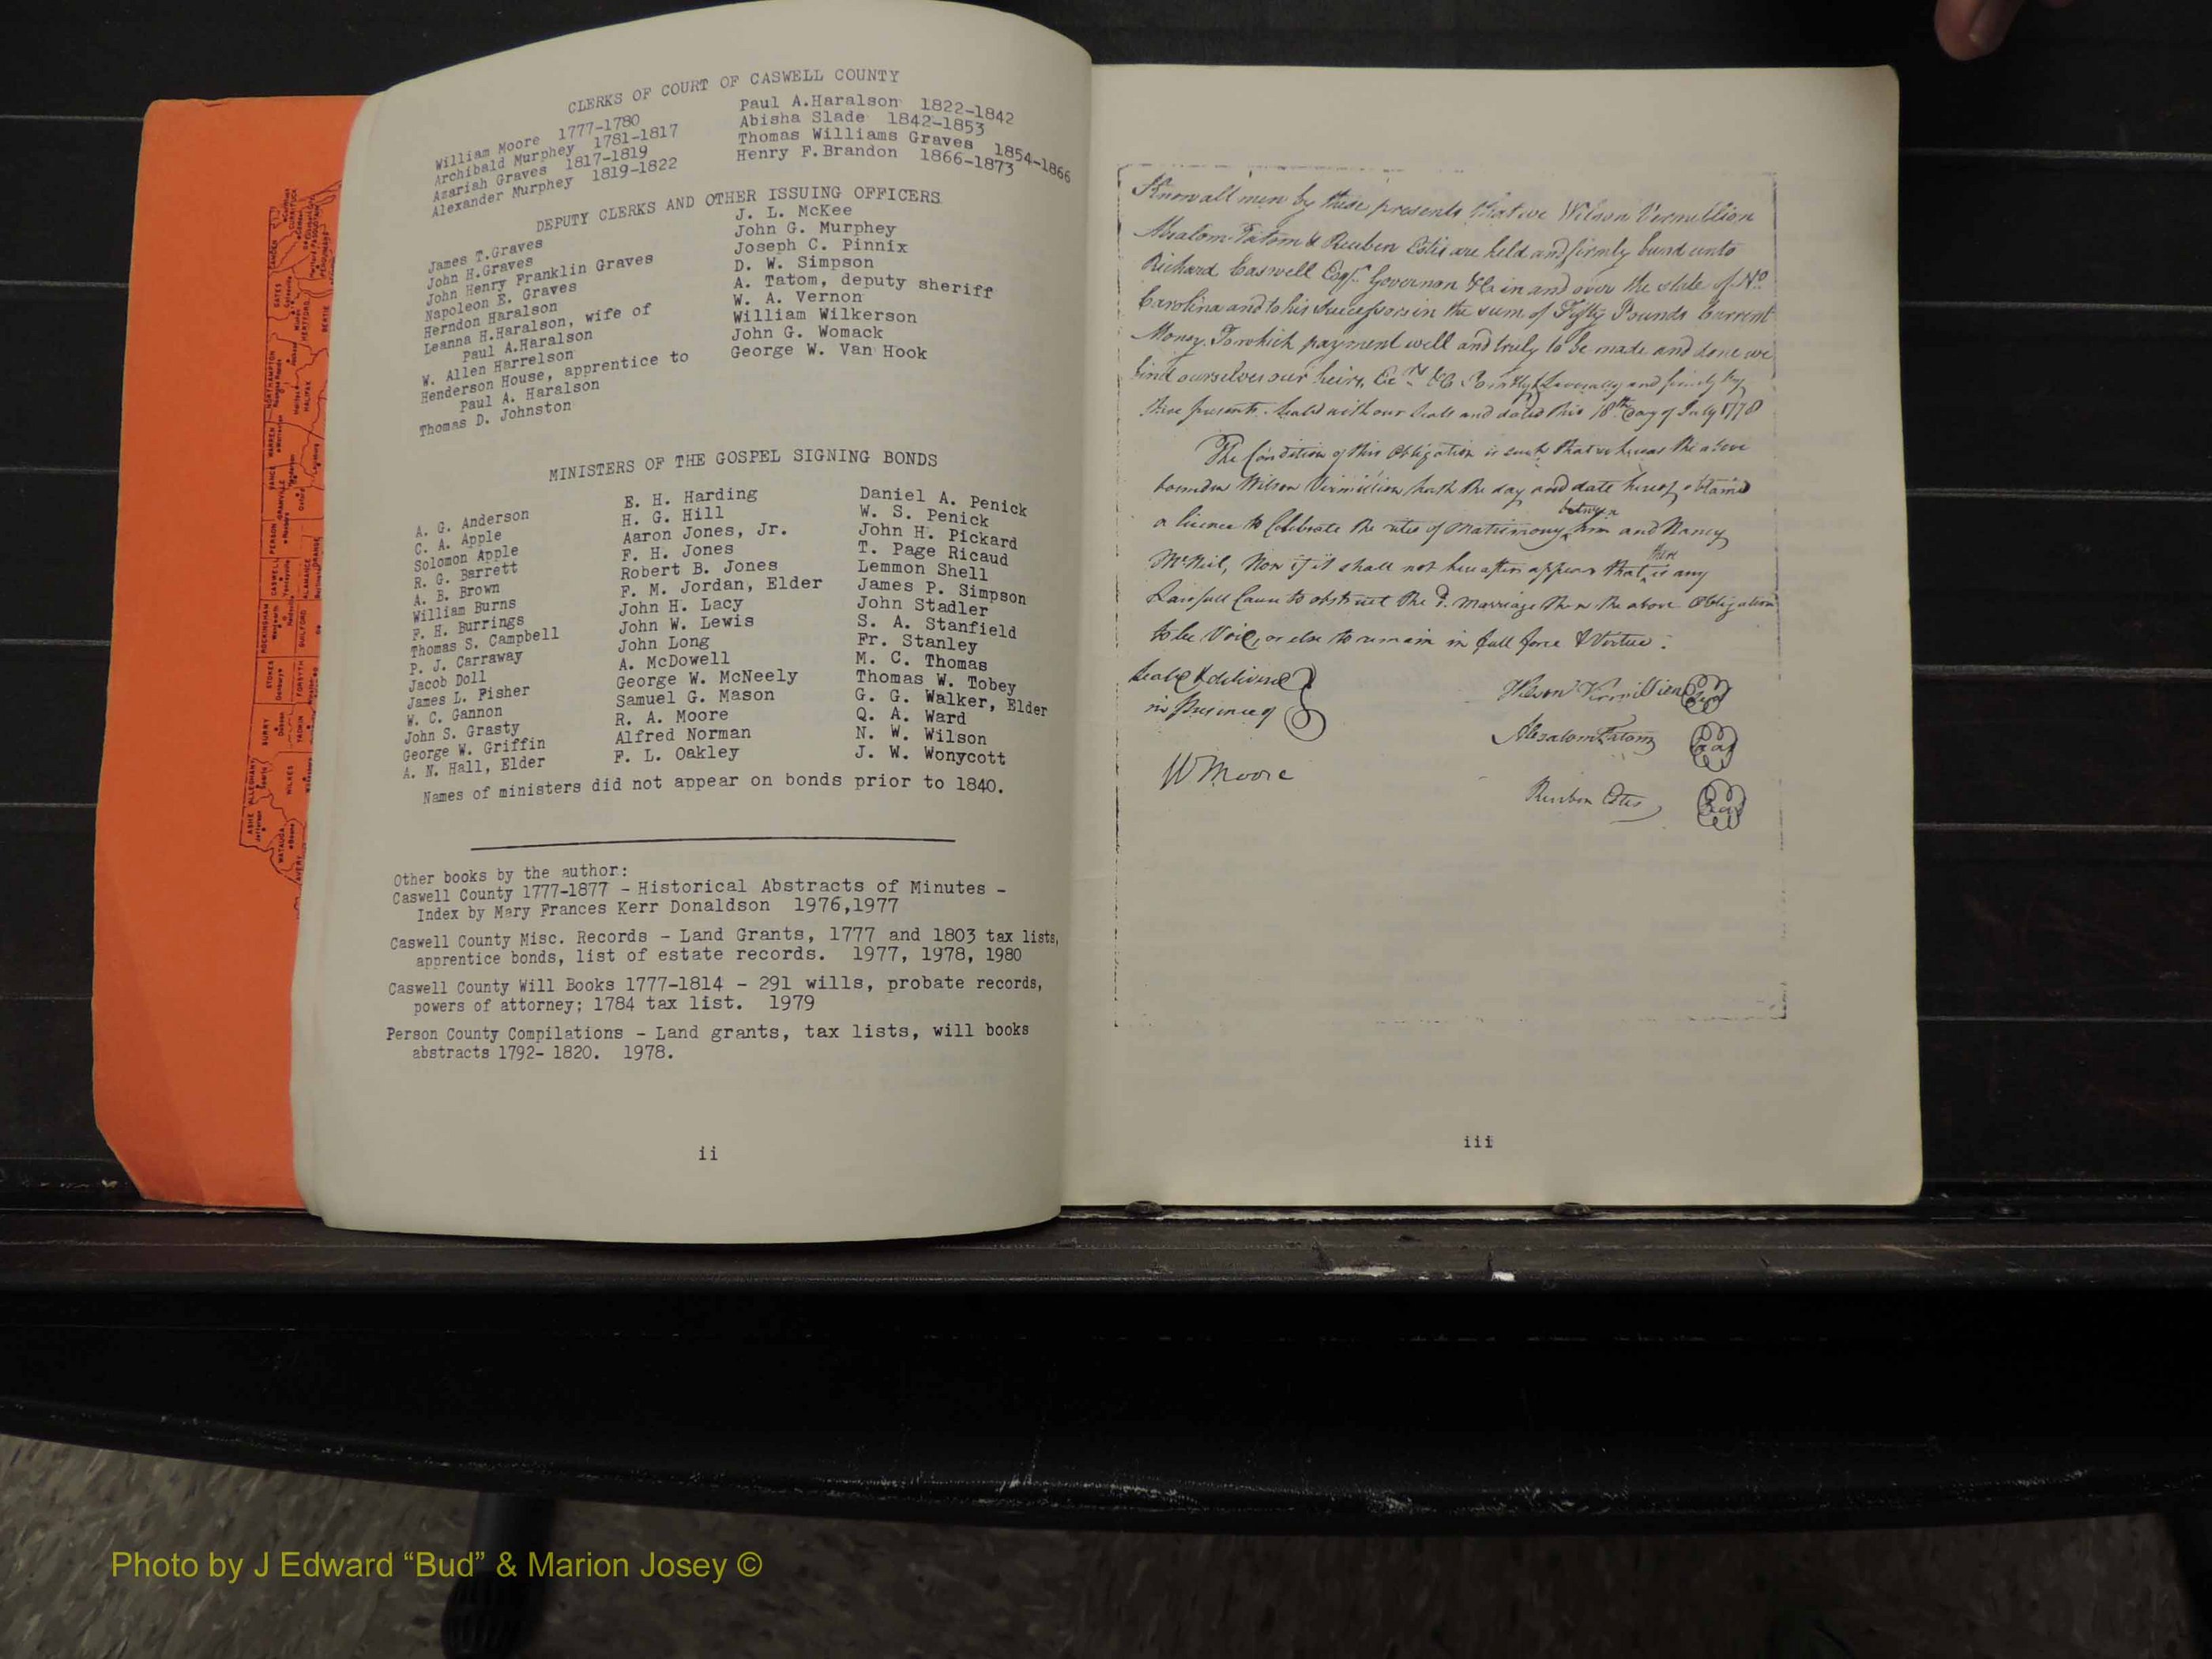 CLERKS OF COURT OF CASWELL COUNTY
William Moore 1777-1780
Archibald Murphey 1781-1817
Azariah Graves 1817-1819
Alexander Murphey 1819-1822
Paul A.Haralson 1822-1842
Abisha Slade 1842-1853
Thomas Williams Graves 1854-1866
Henry F.Brandon 1866-1873
DEPUTY CLERKS AND OTHER ISSUING OFFICERS
James T.Graves
John H.Graves
John Henry Franklin Graves
Napoleon E. Graves
Herndon Haralson
Leanna H.Haralson, wife of
Paul A.Haralson
W. Allen Harrelson
Henderson House, apprentice to
Paul A. Haralson
Thomas D. Johnston
J. L. McKee
John G. Murphey
Joseph C. Pinnix
D. W. Simpson
A. Tatom, deputy sheriff
W. A. Vernon
William Wilkerson
John G. Womack
George W. Van Hook
MINISTERS OF THE GOSPEL SIGNING BONDS
A. G. Anderson
C. A. Apple
Solomon Apple
R. G. Barrett
A. B. Brown
William Burns
F. H. Burrings
Thomas S. Campbell
P. J. Carraway
Jacob Doll
James L. Fisher
W. C. Gannon
John S. Grasty
George W. Griffin
A. N. Hall, Elder
E. H. Harding
H. G. Hill
Aaron Jones, Jr.
F. H. Jones
Robert B. Jones
F. M. Jordan, Elder
John H. Lacy
John W. Lewis
John Long
A. McDowell
George W. McNeely
Samuel G. Mason
R. A. Moore
Alfred Norman
F. L. Oakley
Daniel A. Penick
W. S. Penick
John H. Pickard
T. Page Ricaud
Lemmon Shell
James P. Simpson
John Stadler
S. A. Stanfield
Fr. Stanley
M. C. Thomas
Thomas W. Tobey
G. G. Walker, Elder
Q. A. Ward
N. W. Wilson
J. W. Wonycott
Names of ministers did not appear on bonds prior to 1840.
Other books by the author:
Caswell County 1777-1877 - Historical Abstracts of Minutes -
Index by Mary Frances Kerr Donaldson 1976,1977
Caswell County Misc. Records - Land Grants, 1777 and 1803 tax lists,
apprentice bonds, list of estate records. 1977, 1978, 1980
Caswell County Will Books 1777-1814 - 291 wills, probate records,
powers of attorney; 1784 tax list. 1979
Person County Compilations - Land grants, tax lists, will books
abstracts 1792- 1820. 1978.
ii
Know all men by these presents that we Wilson Vermillion
Absalom Tatom & Reuben Estis are held and firmly bund unto
Richard Caswell Esqr. Governor &c in and over the state of No
Carolina and to his Successors in the sum of Fifty Pounds Current
Money. To which payment well and truly to be made and done we
bind ourselves our heirs, &c Jointly & Severally and firmly by
these presents. Seald with our seals and dated this 18th day of July 1778
The Condition of this Obligation is such that whereas the above
bounden Wilson Vermillion hath the day and date hereof obtained
a licence to Celebrate the rites of Matrimony between him and Nancy
McNeil, Now if it shall not hereafter appear that there is any
Lawfull Cause to obstruct the sd. Marriage then the above Obligation
to be Void, or else to remain in full force & Virtue.
Seald & deliverd
in Presence of
W Moore
Wilson Vermillion Seal
Absalom Tatom Seal
Reuben Estis Seal
iii
ASHE
ALLEGHANY
WATAUGA
AVERY
WILKES
SURRY
YADKIN
STOKES
FORSYTH
ROCKINGHAM
GUILFORD
CASWELL
ALAMANCE
PERSON
ORANGE
GRANVILLE
VANCE
WARREN
NORTHAMPTON
HALIFAX
HERTFORD
BERTIE
GATES
CAMDEN
Photo by J Edward “Bud” & Marion Josey ©